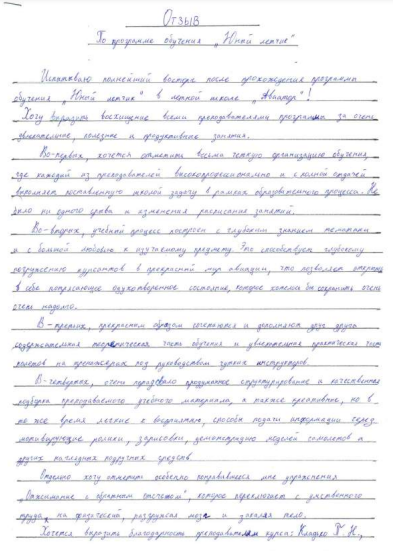 Отзыв
По программе обучения „Юный летчик"
Испытываю полнейший восторг после прохождения программы
обучения „Юный летчик" в летной школе „Авиатор"!
Хочу выразить восхищение всеми преподавателями программы за очень
увлекательные, полезные и продуктивные занятия.
Во-первых, хочется отметить весьма четкую организацию обучения,
где каждый из преподавателей высокопрофессионально и с полной отдачей
выполняет поставленную школой задачу в рамках образовательного процесса. Не
было ни одного срыва и изменения расписания занятий.
Во-вторых, учебный процесс построен с глубоким знанием тематики
и с большой любовью к изучаемому предмету. Это способствует глубокому
погружению курсантов в прекрасный мир авиации, что позволяет открыть
в себе потрясающее одухотворенное состояние, которое хотелось бы сохранить очень
очень надолго.
В-третьих, прекрасным образом сочетаются и дополняют друг друга
содержательная теоретическая часть обучения и увлекательная практическая часть
полетов на тренажерах под руководством чутких инструкторов.
В-четвертых, очень порадовало продуманное структурирование и качественная
подборка преподаваемого учебного материала, а также креативные, но в
то же время легкие к восприятию, способы подачи информации через
мотивирующие ролики, зарисовки, демонстрацию моделей самолетов и
других наглядных подручных средств.
Отдельно хочу отметить особенно понравившееся мне упражнения
„Отжимание с обратным отсчетом", которое переключает с умственного
труда на физический, разгружая мозг и усиляя тело.
Хочется выразить благодарность преподавателям курса: Г. Н.,